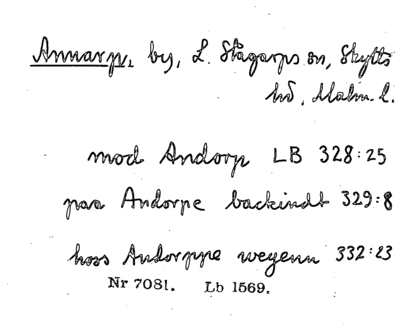 Annarp, by, L. Slågarps sn, Skytts
hd, Malm. l.
mod Andorp LB 328:25
paa Andorpe backindt 329:8
hoss Andorppe wegenn 332:23
Nr 7081. Lb 1569.